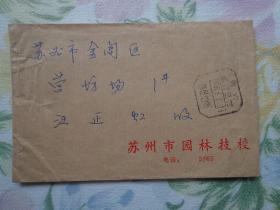 苏州市金阊区
营坊场1#
汪正虹 收
苏州市园林技校
电话：